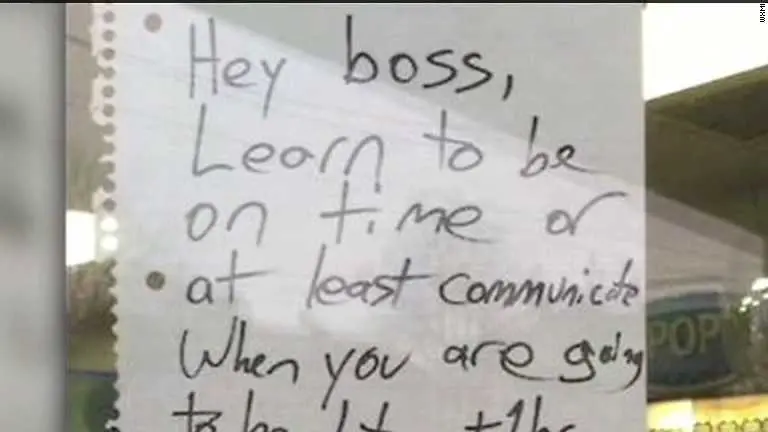 Hey boss,
Learn to be
on time or
at least communicate
When you are going
to be
POP
WXMI